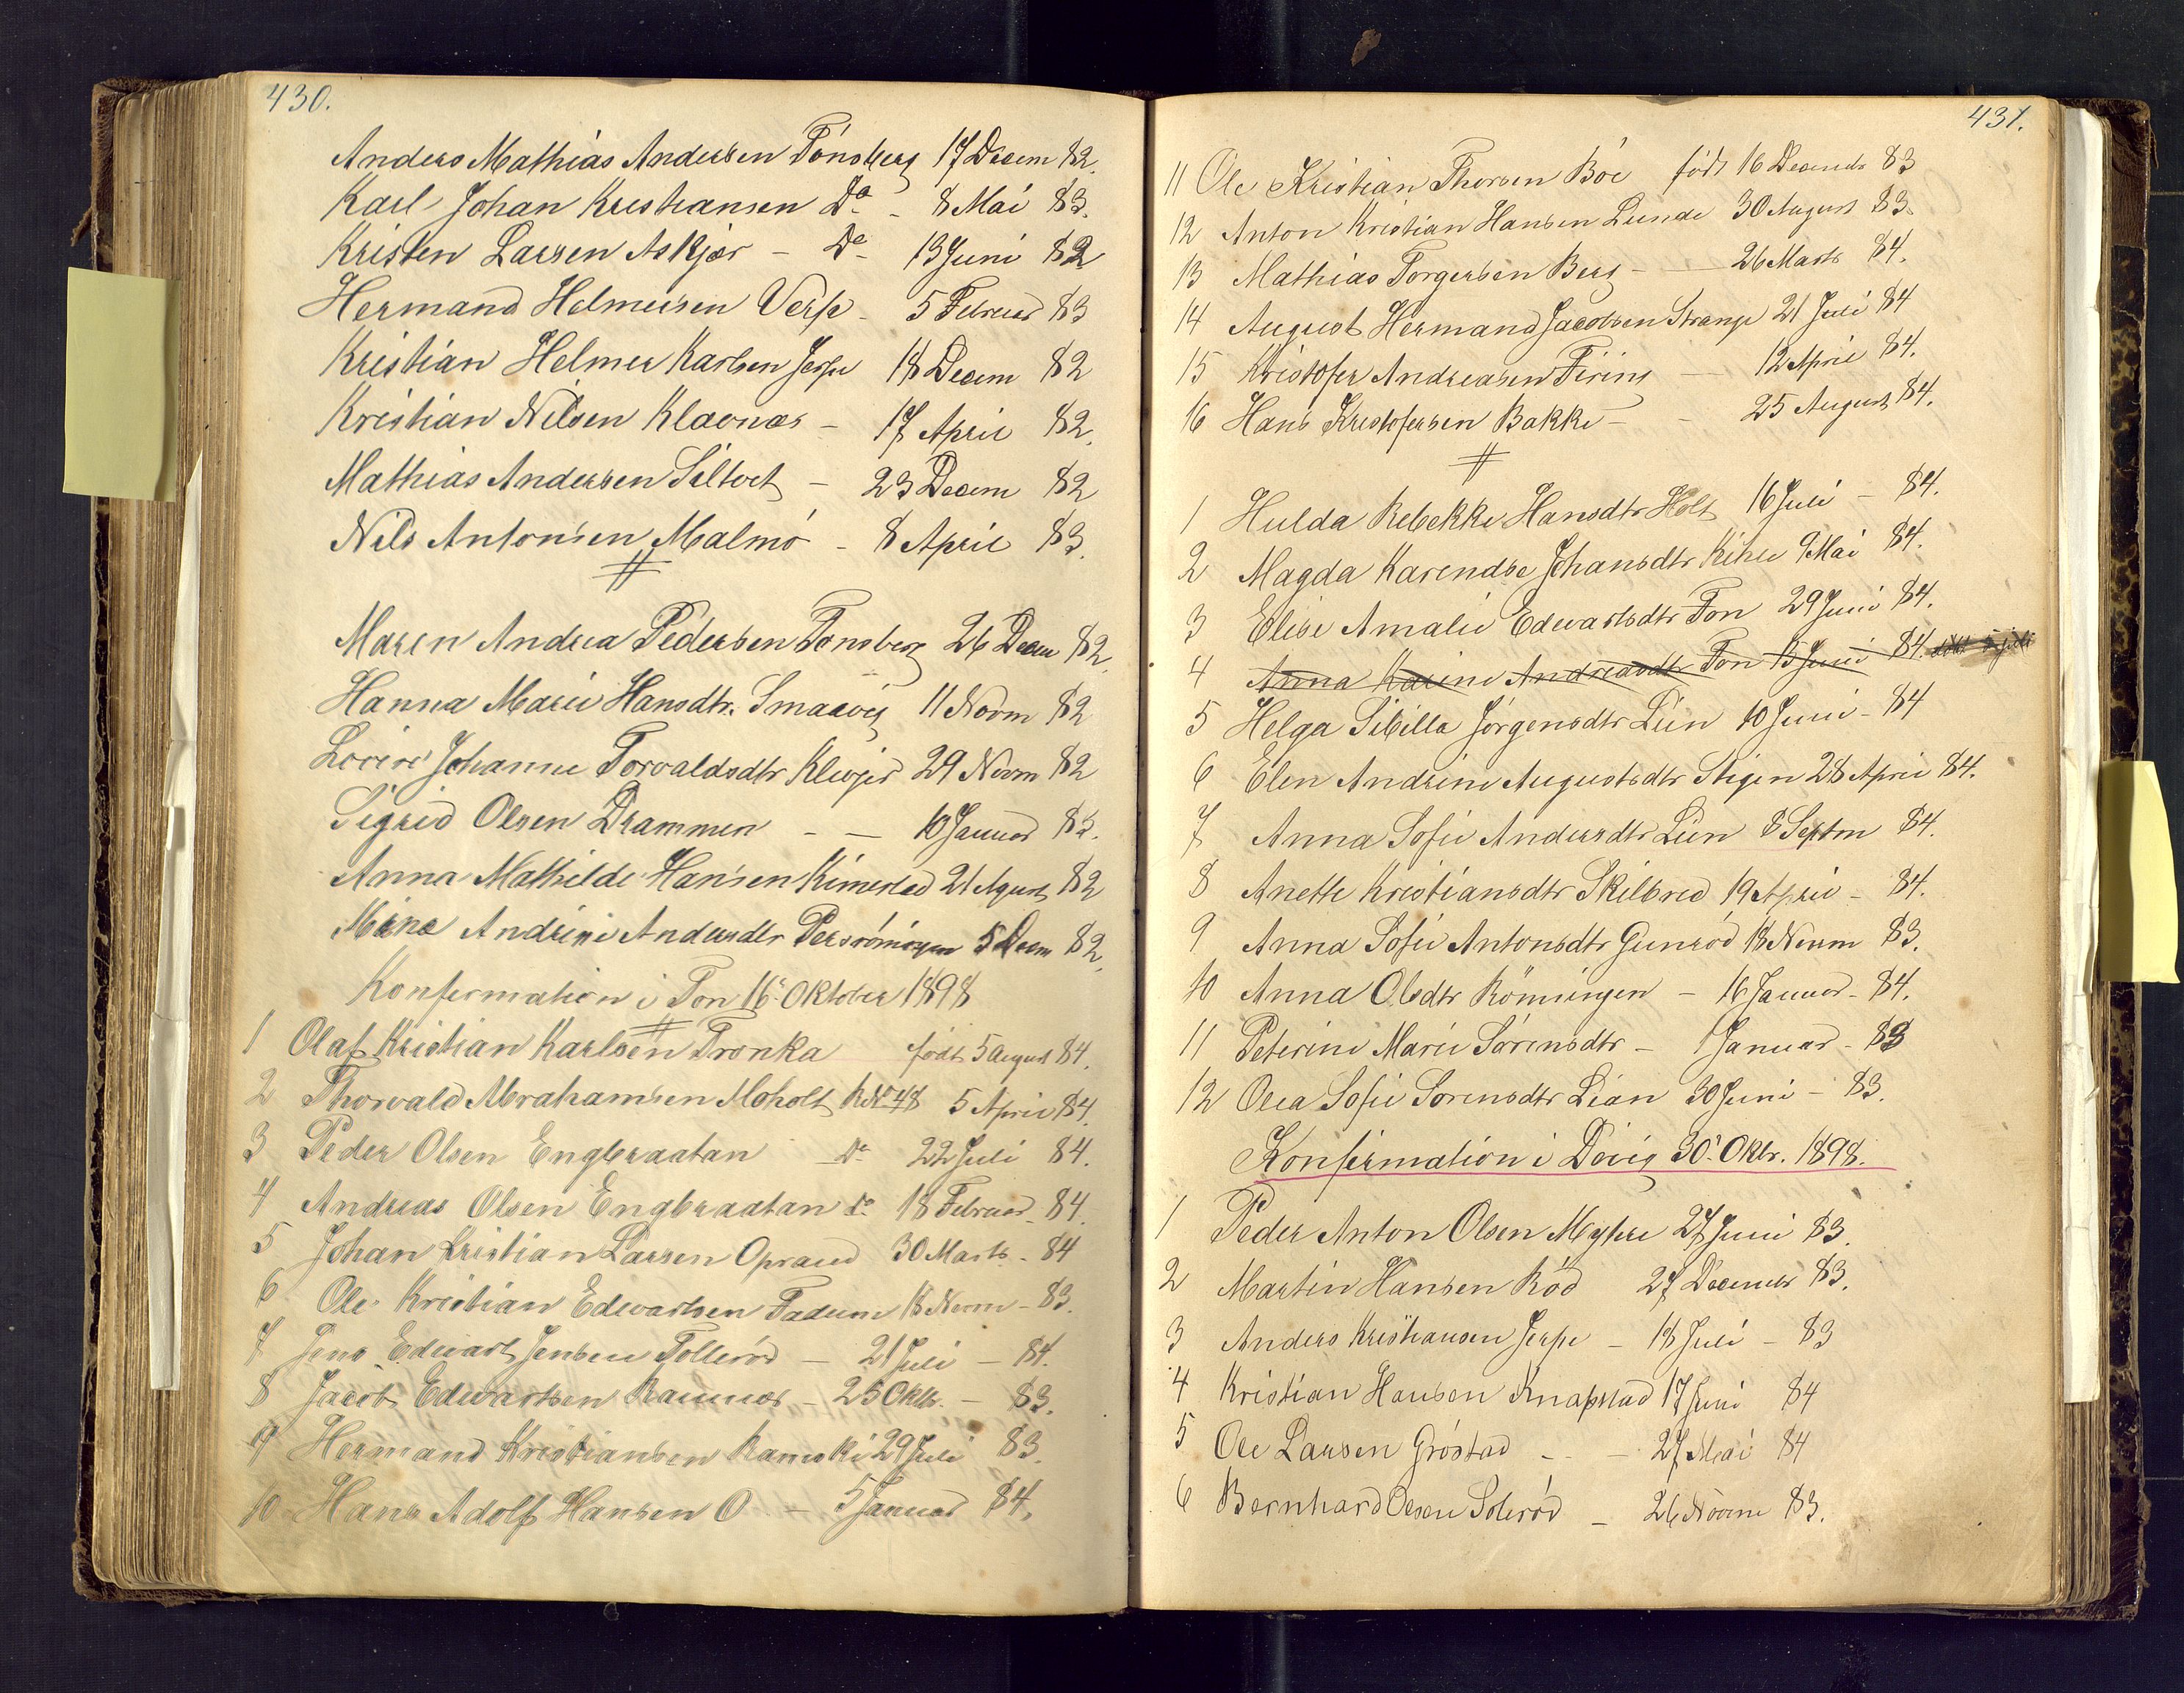 430.
Anders Mathias Andersen Tönsberg 17 Decem 82.
Karl Johan Kristiansen Do - 8 Mai 83.
Kristen Larsen Askjær - Do 13 Juni 82
Hermand Helmersen Verp - 5 Februar 83
Kristian Helmer Karlsen Jerpe 18 Decem 82
Kristian Nilsen Klavnæs - 17 April 82.
Mathias Andersen Siltvet - 23 Decem 82
Nils Antonsen Malmö - 8 April 83.
Maren Andrea Pedersen Tönsberg 26 Decem 82.
Hanna Marie Hansdtr. Smaavig 11 Novm 82
Lovise Johanne Torvaldsdtr Klevjer 29 Novm 82
Sigrid Olsen Drammen - - 10 Januar 83.
Anna Mathilde Hansen Kimestad 21 Agust 82
Andrine Andersdtr 5 Decem 82.
Konfermation i Fon 16de Oktober 1898
1 Olaf Kristian Karlsen Tronka födt 5 August 84.
2 Thorvald Abrahamsen Moholt 5 April 84.
3 Peder Olsen Engbraatan Do 22 Juli 84.
4 Andreas Olsen Engbraatan do 18 Februar 84.
5 Johan Kristian Larsen Opraud 30 Marts - 84
6 Ole Kristian Edvartsen Fadum 18 Novm - 83.
7 Jens Edvart Jensen Tollerød - 21 Juli - 84.
8 Jacob Edvartsen Ramnæs - 25 Oktb. - 83.
9 Hermand Kristiansen 29 Juli 83.
10 Hans Adolf Hansen O - 5 Januar 84.
431.
11 Ole Kristian Thorsen Böe födt 16 Decembr 83
12 Anton Kristian Hansen Lunde 30 August 83.
13 Mathias Torgersen Berg - - 26 Marts 84.
14 August Hermand Jacobsen Strange 21 Juli 84
15 Kristofer Andreasen Firing - 12 April 84.
16 Hans Kristofersen Bakke - - 25 August 84.
1 Hulda Rebekke Hansdtr Holt 16 Juli - 84.
2 Magda Karendse Johansdtr Kihle 9 Mai 84.
3 Elise Amalie Edvartsdtr Fon 29 Juni 84.
4 Anna Karine Andreasdtr Fon 15 Juni 84.
5 Helga Sibilla Jörgensdtr Lien 10 Juni - 84
6 Elen Andrine Augustsdtr Stigen 28 April 84.
7 Anna Sofie Andersdtr Lien 8 Septm 84.
8 Anette Kristiansdtr Skilbred 19 April - 84.
9 Anna Sofie Antonsdtr Gunröd 18 Novm 83.
10 Anna Olsdtr Römingen - 16 Januar - 84.
11 Peterine Marie Sörensdtr - 1 Januar - 83
12 Olea Sofie Sorensdtr Lian 30 Juni - 83.
Konfirmation i Vivig 30' Oktr. 1898.
1 Peder Anton Olsen Mykre 27 Juni 83.
2 Martin Hansen Röd 27 Decembr 83.
3 Anders Kristiansen Jerpe - 18 Juli - 83
4 Kristian Hansen Knapstad 17 Juni 84
5 Ole Larsen Gröstad - - 27 Mai 84
6 Bernhard Olsen Solerød - 26 Novm 83.